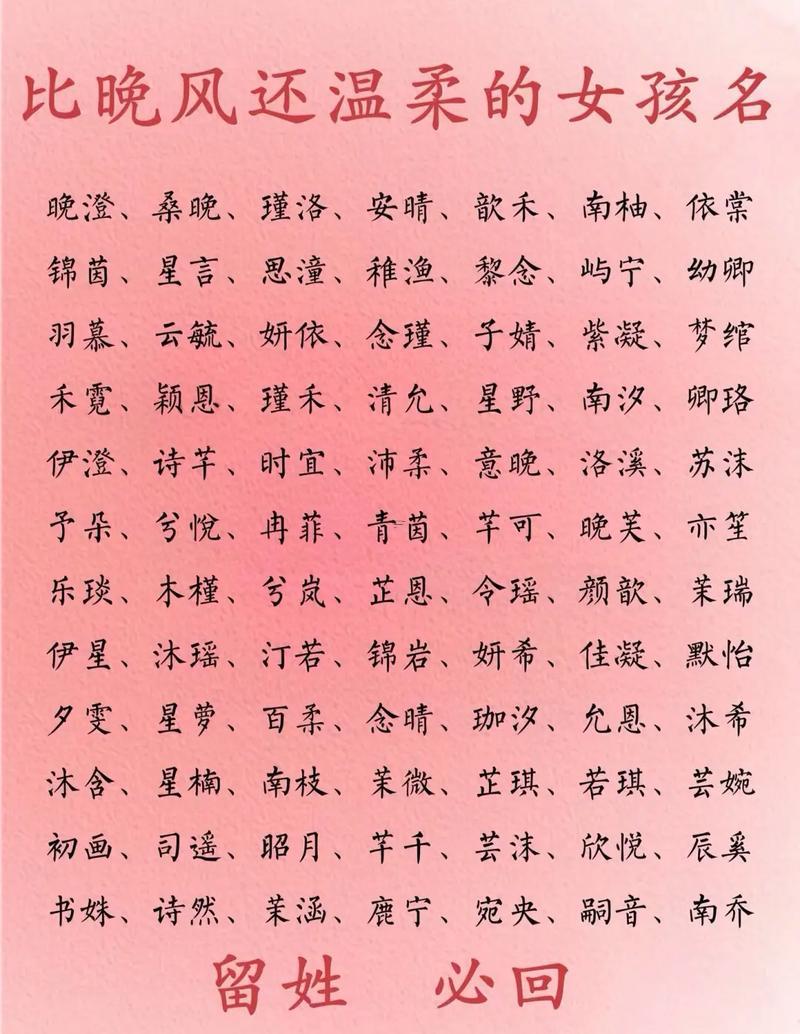 比晚风还温柔的女孩名
晚澄、桑晚、瑾洛、安晴、歆禾、南柚、依棠
锦茵、星言、思潼、稚渔、黎念、屿宁、幼卿
羽慕、云毓、妍依、念瑾、子婧、紫凝、梦绾
禾霓、颖恩、瑾禾、清允、星野、南汐、卿珞
伊澄、诗芊、时宜、沛柔、意晚、洛溪、苏沫
予朵、兮悦、冉菲、青茵、芊可、晚芙、亦笙
乐琰、木槿、兮岚、芷恩、令瑶、颜歆、茉瑞
伊星、沐瑶、汀若、锦岩、妍希、佳凝、默怡
夕雯、星萝、百柔、念晴、珈汐、允恩、沐希
沐含、星楠、南枝、茉微、芷琪、若琪、芸婉
初画、司遥、昭月、芊千、芸沫、欣悦、辰奚
书姝、诗然、茉涵、鹿宁、宛央、嗣音、南乔
留姓 必回